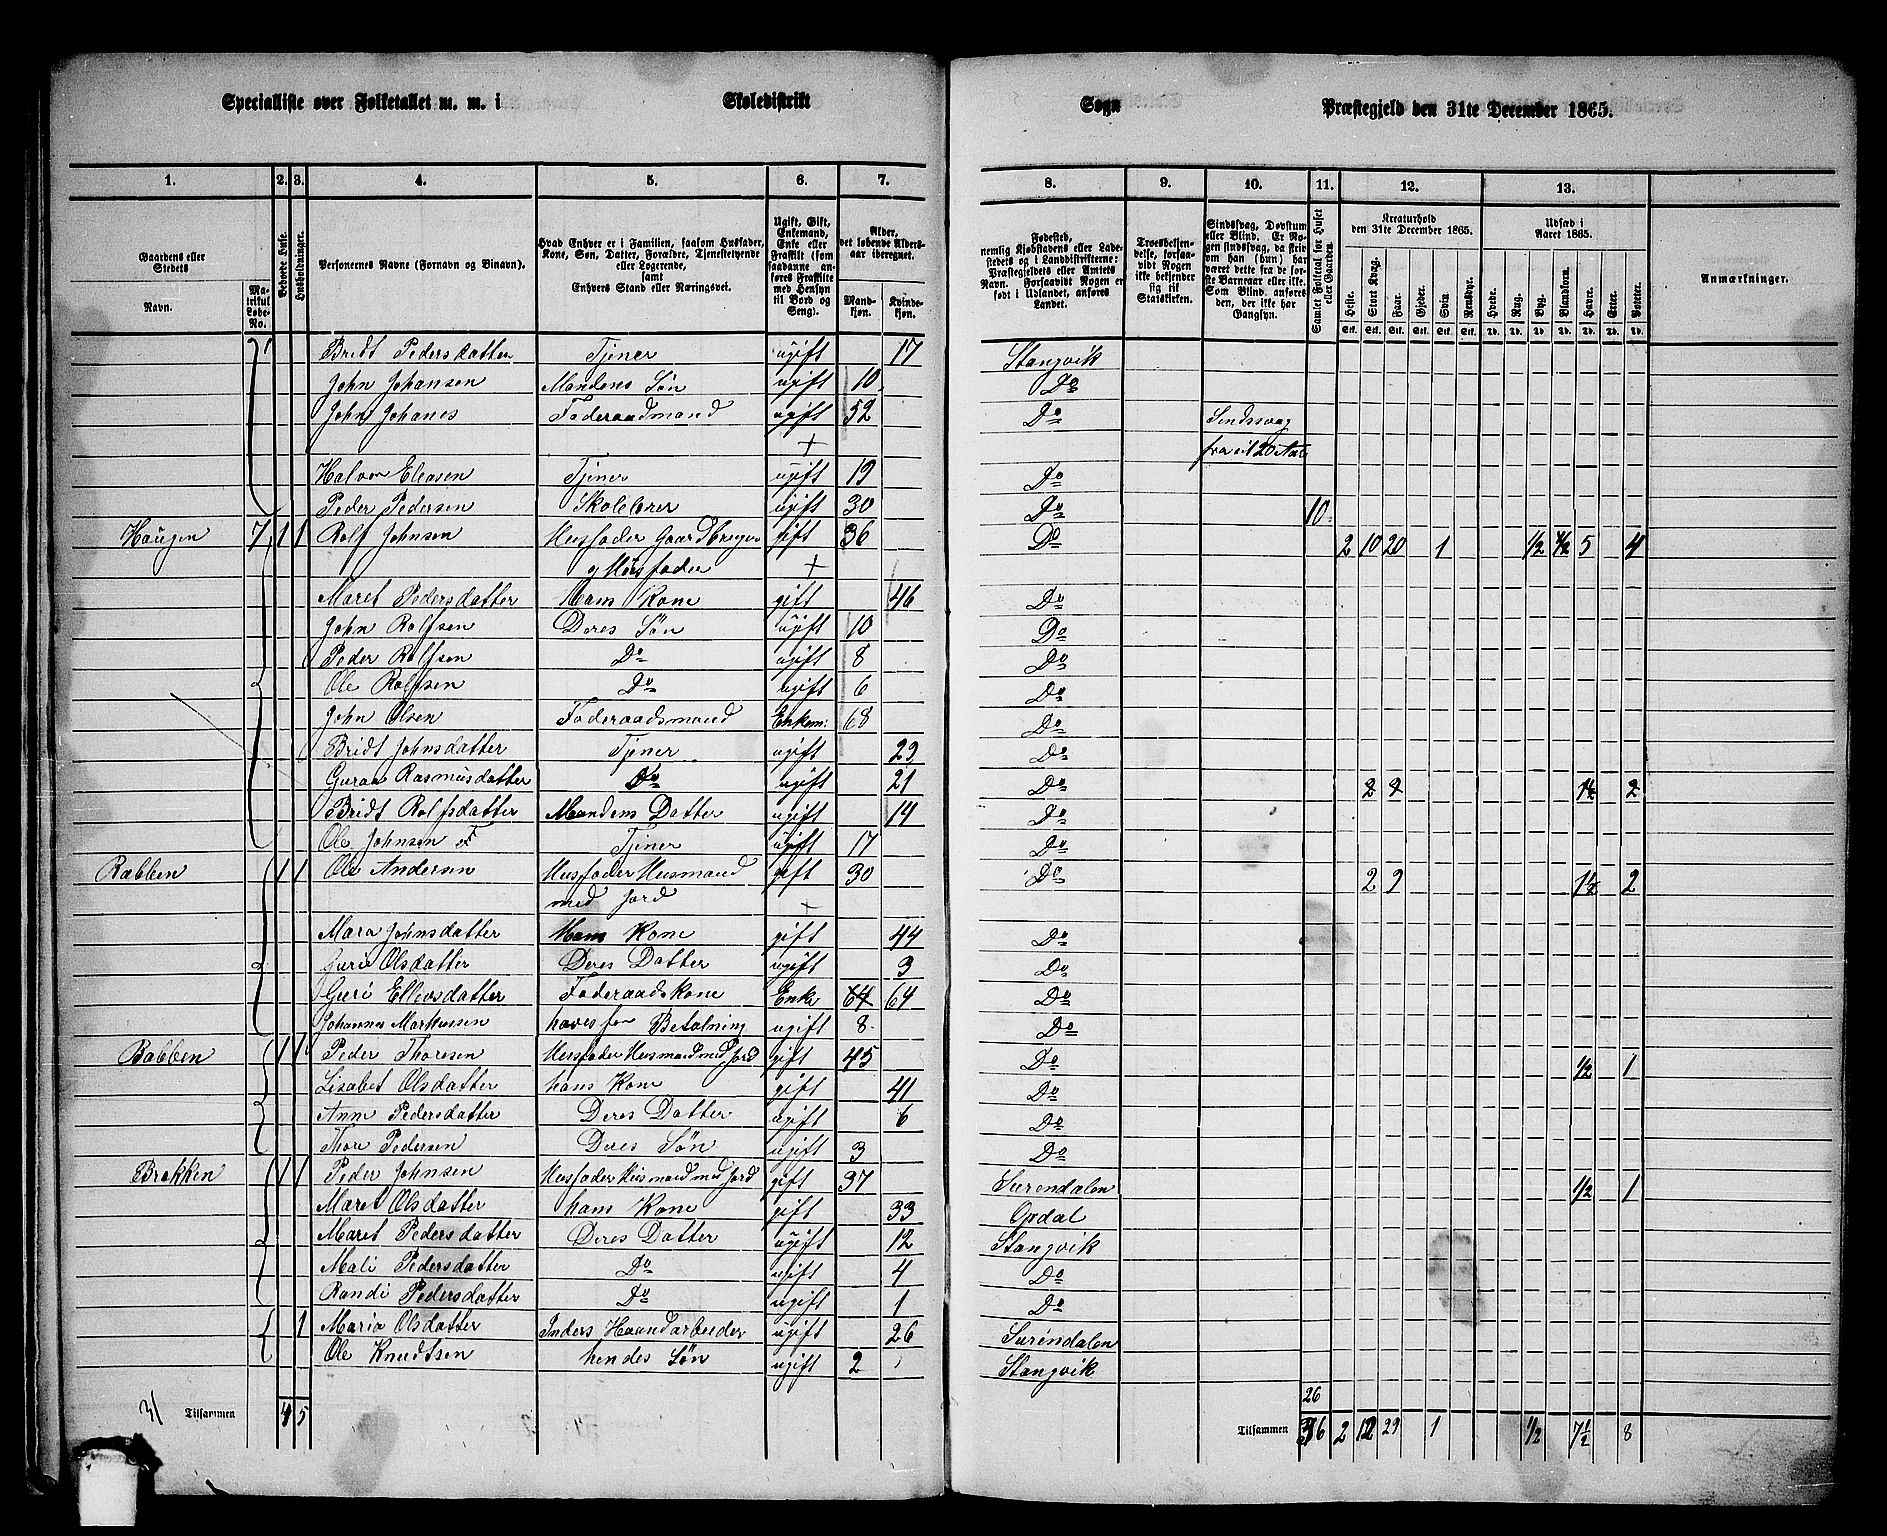 Specialliste over Folketallet m. m. i Skoledistrikt Sogn Præstegjeld den 31te December 1865.
1. 2. 3. 4. 5. 6. 7. 8. 9. 10. 11. 12. 13.
Gaardens eller Stedets
Navn.
Matrikul Løbe-No.
Beboede Huse.
Husholdninger.
Personernes Navne (Fornavn og Binavn).
Hvad Enhver er i Familien, saasom Husfader, Kone, Søn, Datter, Forældre, Tjenestetyende eller Logerende, samt Enhvers Stand eller Næringsvei.
Ugift, Gift, Enkemand, Enke eller Fraskilt (som saadanne anføres Fraskilte med Hensyn til Bord og Seng).
Alder, det løbende Aldersaar iberegnet.
Mandkjøn. Kvindekjøn.
Fødested, nemlig Kjøbstadens eller Ladestedets og i Landdistrikterne: Præstegjeldets eller Amtets Navn. Forsaavidt Nogen er født i Udlandet, anføres Landet.
Troesbekjendelse, forsaavidt Nogen ikke bekjender sig til Statskirken.
Sindssvag, Døvstum eller Blind. Er Nogen sindssvag, da skrives om han (hun) har været dette fra de første Barnaar eller ikke. Som Blind anføres den, der ikke har Gangsyn.
Samlet Folketal for Huset eller Gaarden.
Kreaturhold den 31te December 1865.
Heste. Stort Kvæg. Faar. Gjeder. Svin. Rensdyr.
Udsæd i Aaret 1865.
Hvede. Rug. Byg. Blandkorn. Havre. Erter. Poteter.
Anmærkninger.
Bridt Pedersdatter Tjener ugift 17 Stangvik
John Johansen Mandens Søn ugift 10 Do
John Johanes Føderaadmand ugift 52 Do Sindssvag
+ fra sit 20 Aar
Halvor Eleasen Tjener ugift 19 Do
Peder Pedersen Skolelærer ugift 30 Do 10
Haugen 7 1 1 Rolf Johnsen Husfader Gaardbruger gift 36 Do 2 10 20 1 1/2 1/2 5 4
+
Maret Pedersdatter Hans Kone gift 46 Do
John Rolfsen Deres Søn ugift 10 Do
Peder Rolfsen Do ugift 8 Do
Ole Rolfsen Do ugift 6 Do
John Olsen Føderaadsmand Enkem: 68 Do
Bridt Johnsdatter Tjener ugift 23 Do
Guraa Rasmusdatter Do ugift 21 Do 2 2 1½ 2
Bridt Rolfsdatter Mandens Datter ugift 14 Do
Ole Johnsen Tjener ugift 17 Do
Rabben 1 1 Ole Andersen Husfader Husmand gift 30 Do 2 9 1½ 2
med Jord +
Mara Johnsdatter Hans Kone gift 44 Do
Guri Olsdatter Deres Datter ugift 3 Do
Guri Ellevsdatter Føderaadskone Enke 64 64 Do
Johannes Markussen haves for Betalning ugift 8 Do
Rabben 1 1 Peder Thoresen Husfader Husmand med Jord gift 45 Do 1/2 1
Lisabet Olsdatter hans Kone gift 41 Do
Ann Pedersdatter Deres Datter ugift 6 Do
Thore Pedersen Deres Søn ugift 3 Do
Brekken 1 1 Peder Johnsen Husfader Husmand med Jord gift 37 Surendalen 1/2 1
Maret Olsdatter hans Kone gift 33 Opdal
Maret Pedersdatter Deres Datter ugift 12 Stangvik
Mali Pedersdatter Do ugift 4 Do
Randi Pedersdatter Do ugift 1 Do
1 Maria Olsdatter Inders Haandarbeider ugift 26 Surendalen
Ole Knudtsen hendes Søn ugift 2 Stangvik
26
31 Tilsammen 4 5 Tilsammen 36 2 12 29 1 1/2 7½ 8